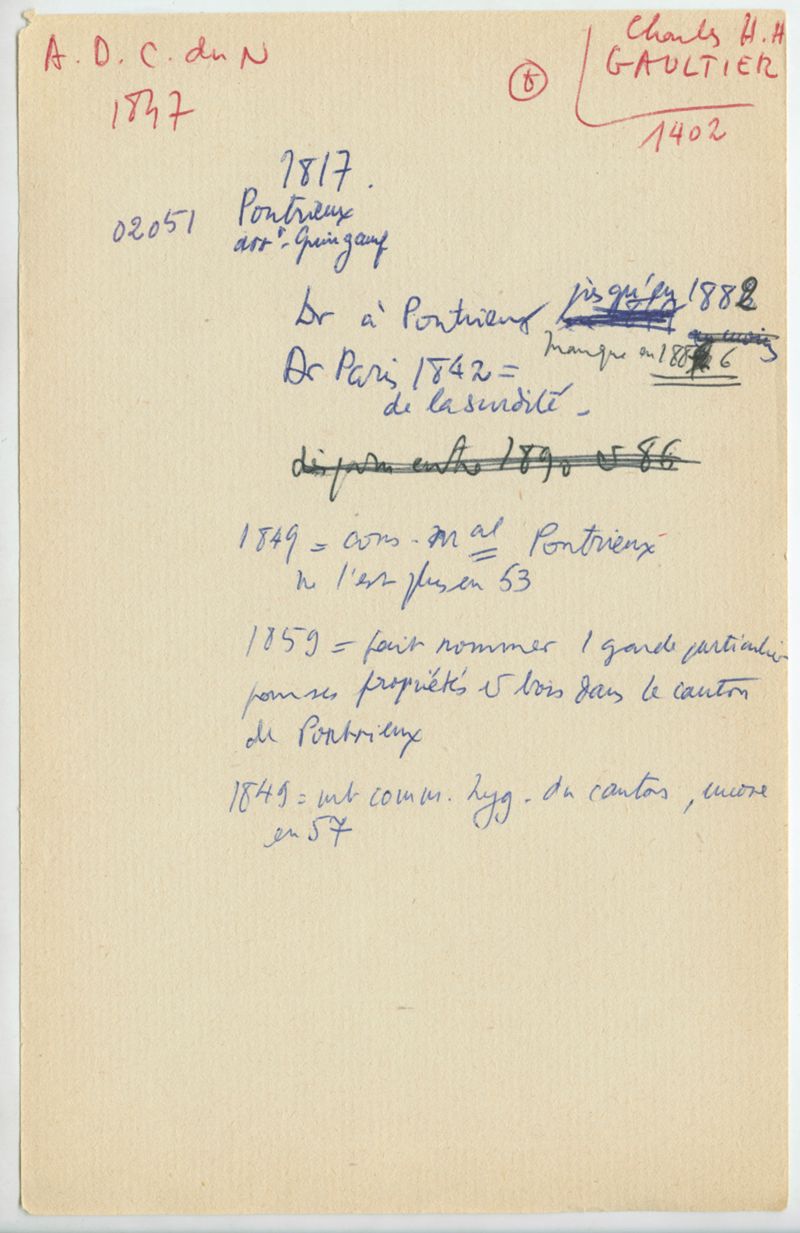 A. D. C. du N
1847
Charles H. H
GAULTIER
1402
1817.
02051
Pontrieux
arrt. Guingamp
Dr à Pontrieux jusqu'en 1882
au moins
manque en 1886
Dr Paris 1842 =
de la surdité -
disparu entre 1890 et 86
1849 = cons. mal Pontrieux
ne l'est plus en 53
1859 = fait nommer 1 garde particulier
pour ses propriétés et bois dans le canton
de Pontrieux
1849 = mb comm. hyg. du canton, encore
en 57